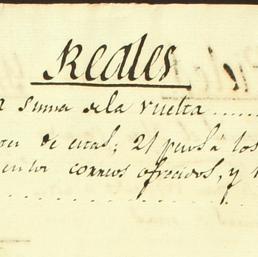 Reales
suma de la vuelta
de estas; 21 para los
correos ofrecidos, y